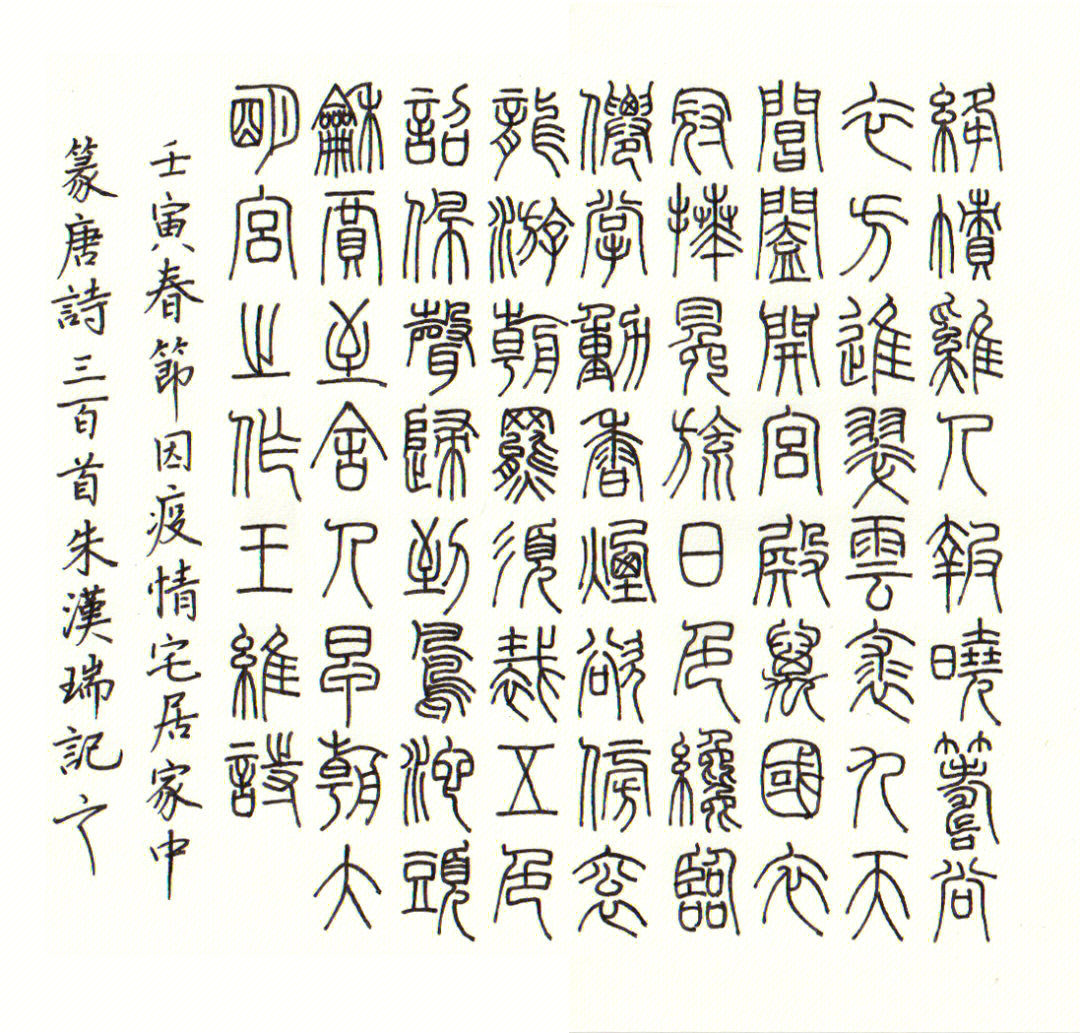 絳幘雞人報曉籌尚
衣方進翠雲裘九天
閶闔開宮殿萬國衣
冠拜冕旒日色纔臨
僊掌動香煙欲傍袞
龍游朝罷須裁五色
詔佩聲歸到鳳池頭
龢賈至舍人早朝大
明宮之作王維詩
壬寅春節因疫情宅居家中
篆唐詩三百首朱漢瑞記之